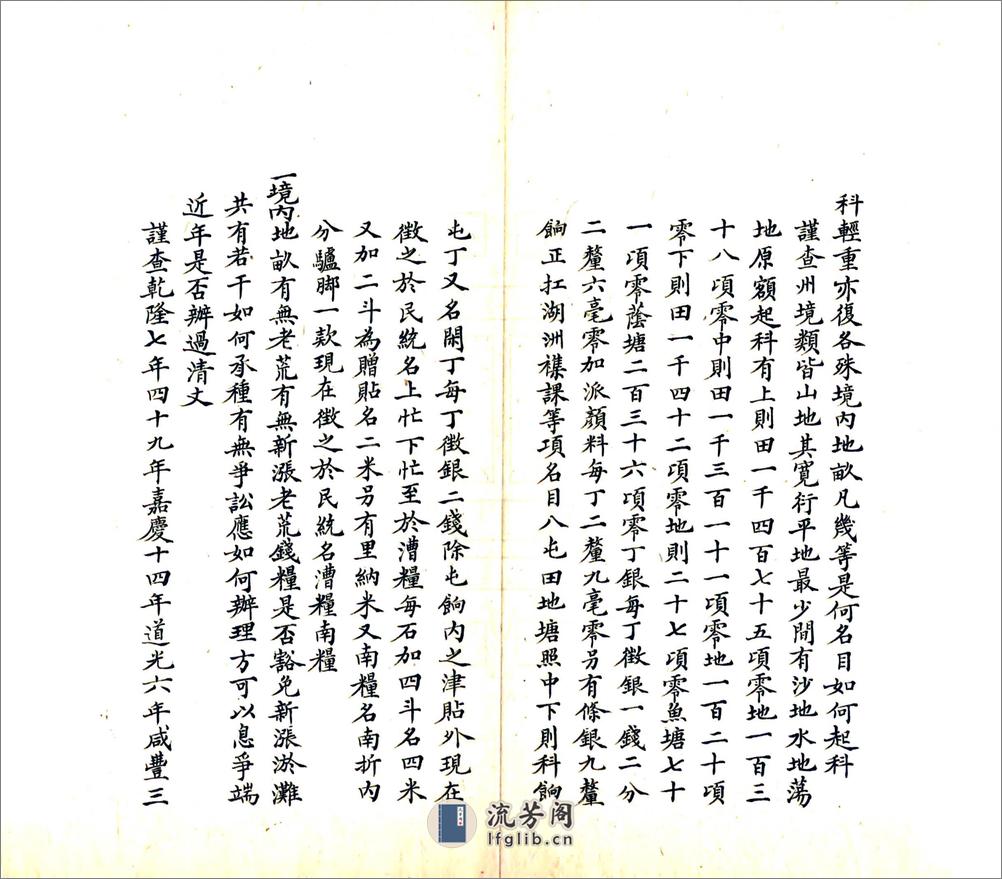 科輕重亦復各殊境內地畝凡幾等是何名目如何起科
謹查州境纇皆山地其寬衍平地最少間有沙地水地蕩
地原額起科有上則田一千四百七十五項零地一百三
十八項零中則田一千三百一十一項零地一百二十項
零下則田一千四十二項零地則二十七項零魚塘七十
一項零蔭塘二百三十六項零丁銀每丁徵銀一錢二分
二釐六毫零加派顏料每丁二釐九毫零另有條銀九釐
餉正扛湖洲襍課等項名目八屯田地塘照中下則科餉
屯丁又名閑丁每丁徵銀二錢除屯餉內之津貼外現在
徵之於民統名上忙下忙至於漕糧每石加四斗名四米
又加二斗為贈貼名二米另有里納米又南糧名南折內
分驢脚一款現在徵之於民統名漕糧南糧
一境內地畝有無老荒有無新漲老荒錢糧是否豁免新漲淤灘
共有若干如何承種有無爭訟應如何辦理方可以息爭端
近年是否辦過清丈
謹查乾隆七年四十九年嘉慶十四年道光六年咸豐三
流芳阁
lfglib.cn